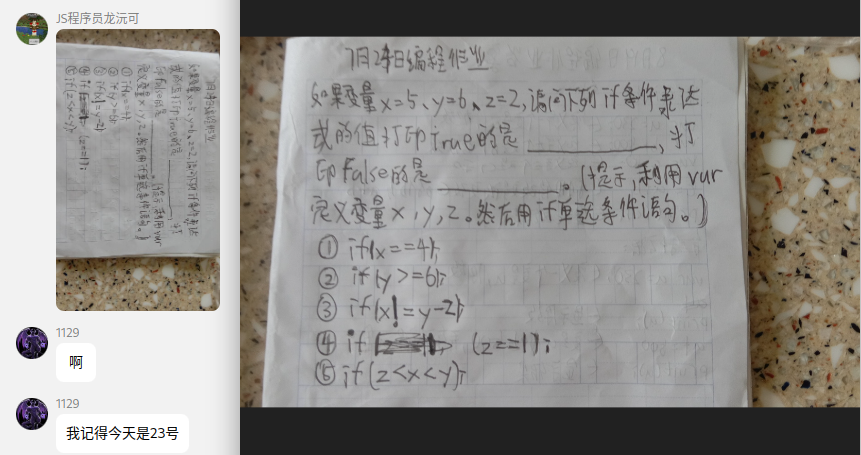 JS程序员龙沅可
1129
啊
1129
我记得今天是23号
7月24日编程作业
如果变量x=5、y=6、z=2,请问下列if条件表达
式的值打印true的是________,打
印False的是________。(提示,利用var
定义变量x,y,z。然后用if单选条件语句。)
① if(x==4);
② if(y>=6);
③ if(x!=y-2);
④ if (z==1);
⑤ if(z<x<y);